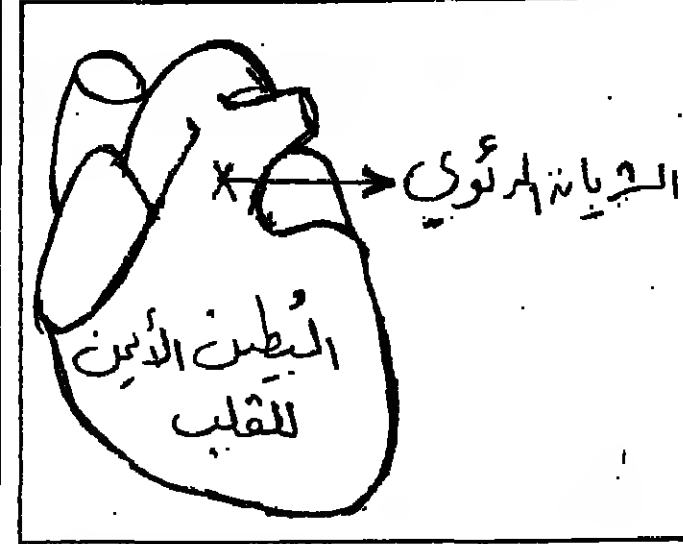 الشريان الرئوي
البُطين الأيمن
للقلب